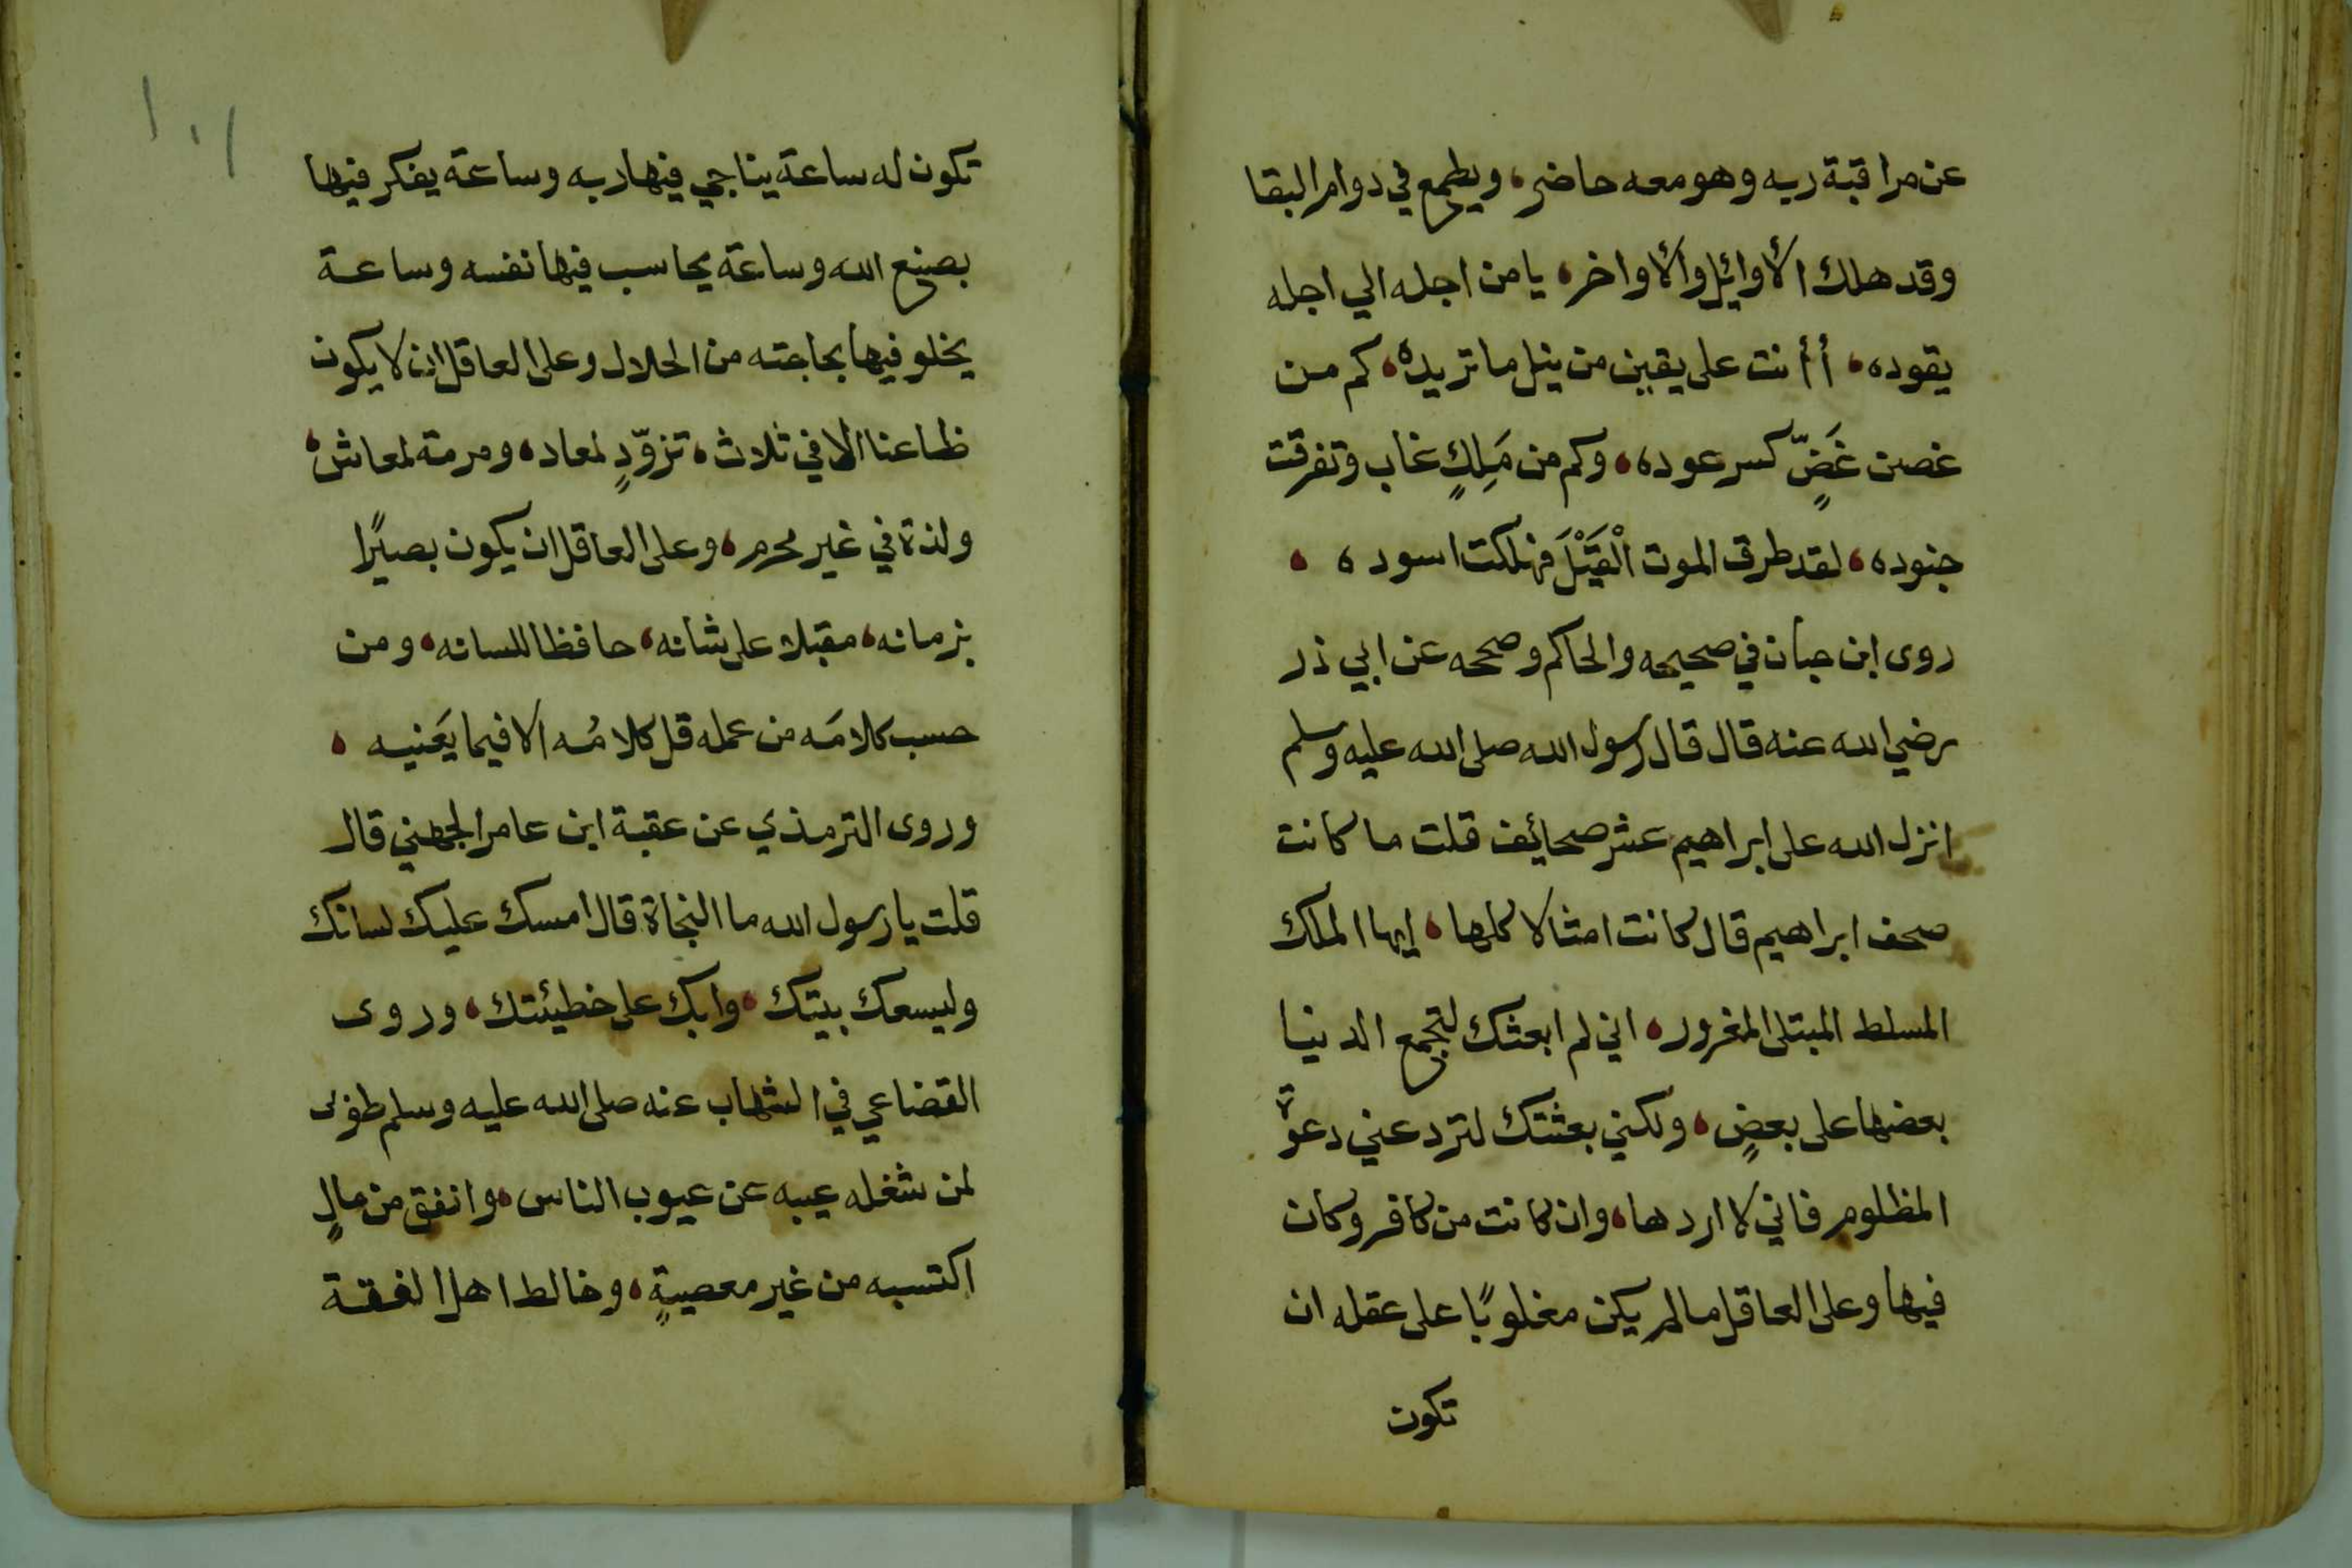 عن مراقبة ربه وهو معه حاضر، ويطمع في دوام البقا
وقد هلك الأوائل والأواخر، يا من اجله الي اجله
يقوده، أأنت على يقين من ينل ما تريده، كم من
غصن غَضٍّ كسر عوده، وكم من مَلِكٍ غاب وتفرقت
جنوده، لقد طرق الموت الْقَيْلَ فهلكت اسوده،
روى ابن حبان في صحيحه والحاكم وصححه عن ابي ذر
رضي الله عنه قال قال رسول الله صلى الله عليه وسلم
انزل الله على ابراهيم عشر صحائف قلت ما كانت
صحف ابراهيم قال كانت امثالا كلها، ايها الملك
المسلط المبتلى المغرور، اني لم ابعثك لتجمع الدنيا
بعضها على بعضٍ، ولكني بعثتك لترد عني دعوة
المظلوم فاني لا اردها، وان كانت من كافر وكان
فيها وعلى العاقل ما لم يكن مغلوبًا على عقله ان
تكون
١٠١
تكون له ساعة يناجي فيها ربه وساعة يفكر فيها
بصنع الله وساعة يحاسب فيها نفسه وساعة
يخلو فيها بحاجته من الحلال وعلى العاقل ان لا يكون
ظاعنا الا في ثلاث، تزوّدٍ لمعاد، ومرمة لمعاش،
ولذة في غير محرم، وعلى العاقل ان يكون بصيرًا
بزمانه، مقبلا على شانه، حافظا للسانه، ومن
حسب كلامَه من عمله قل كلامُه الا فيما يَعنيه،
وروى الترمذي عن عقبة ابن عامر الجهني قال
قلت يا رسول الله ما النجاة قال امسك عليك لسانك
وليسعك بيتك، وابك على خطيئتك، وروى
القضاعي في الشهاب عنه صلى الله عليه وسلم طوبى
لمن شغله عيبه عن عيوب الناس، وانفق من مالٍ
اكتسبه من غير معصيةٍ، وخالط اهل الفقة